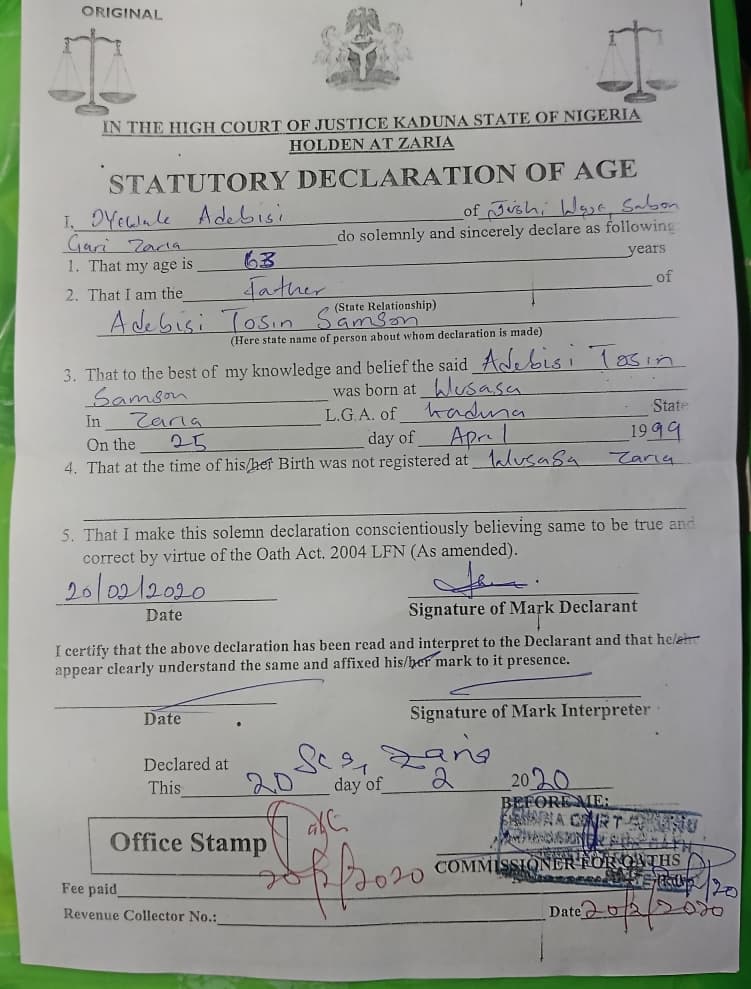 ORIGINAL
IN THE HIGH COURT OF JUSTICE KADUNA STATE OF NIGERIA
HOLDEN AT ZARIA
STATUTORY DECLARATION OF AGE
I, Oyewale Adebisi of Jushi, Waje, Sabon
Gari Zaria do solemnly and sincerely declare as following
1. That my age is 63 years
2. That I am the Father of
(State Relationship)
Adebisi Tosin Samson
(Here state name of person about whom declaration is made)
3. That to the best of my knowledge and belief the said Adebisi Tosin
Samson was born at Wusasa
In Zaria L.G.A. of Kaduna State
On the 25 day of April 1999
4. That at the time of his/her Birth was not registered at Wusasa Zaria
5. That I make this solemn declaration conscientiously believing same to be true and
correct by virtue of the Oath Act. 2004 LFN (As amended).
20/02/2020
Date Signature of Mark Declarant
I certify that the above declaration has been read and interpret to the Declarant and that he/she
appear clearly understand the same and affixed his/her mark to it presence.
Date Signature of Mark Interpreter
Declared at Zaria
This 20 day of 2 2020
BEFORE ME:
Office Stamp
COMMISSIONER FOR OATHS
20/2/2020
Fee paid
Revenue Collector No.: Date 20/2/2020